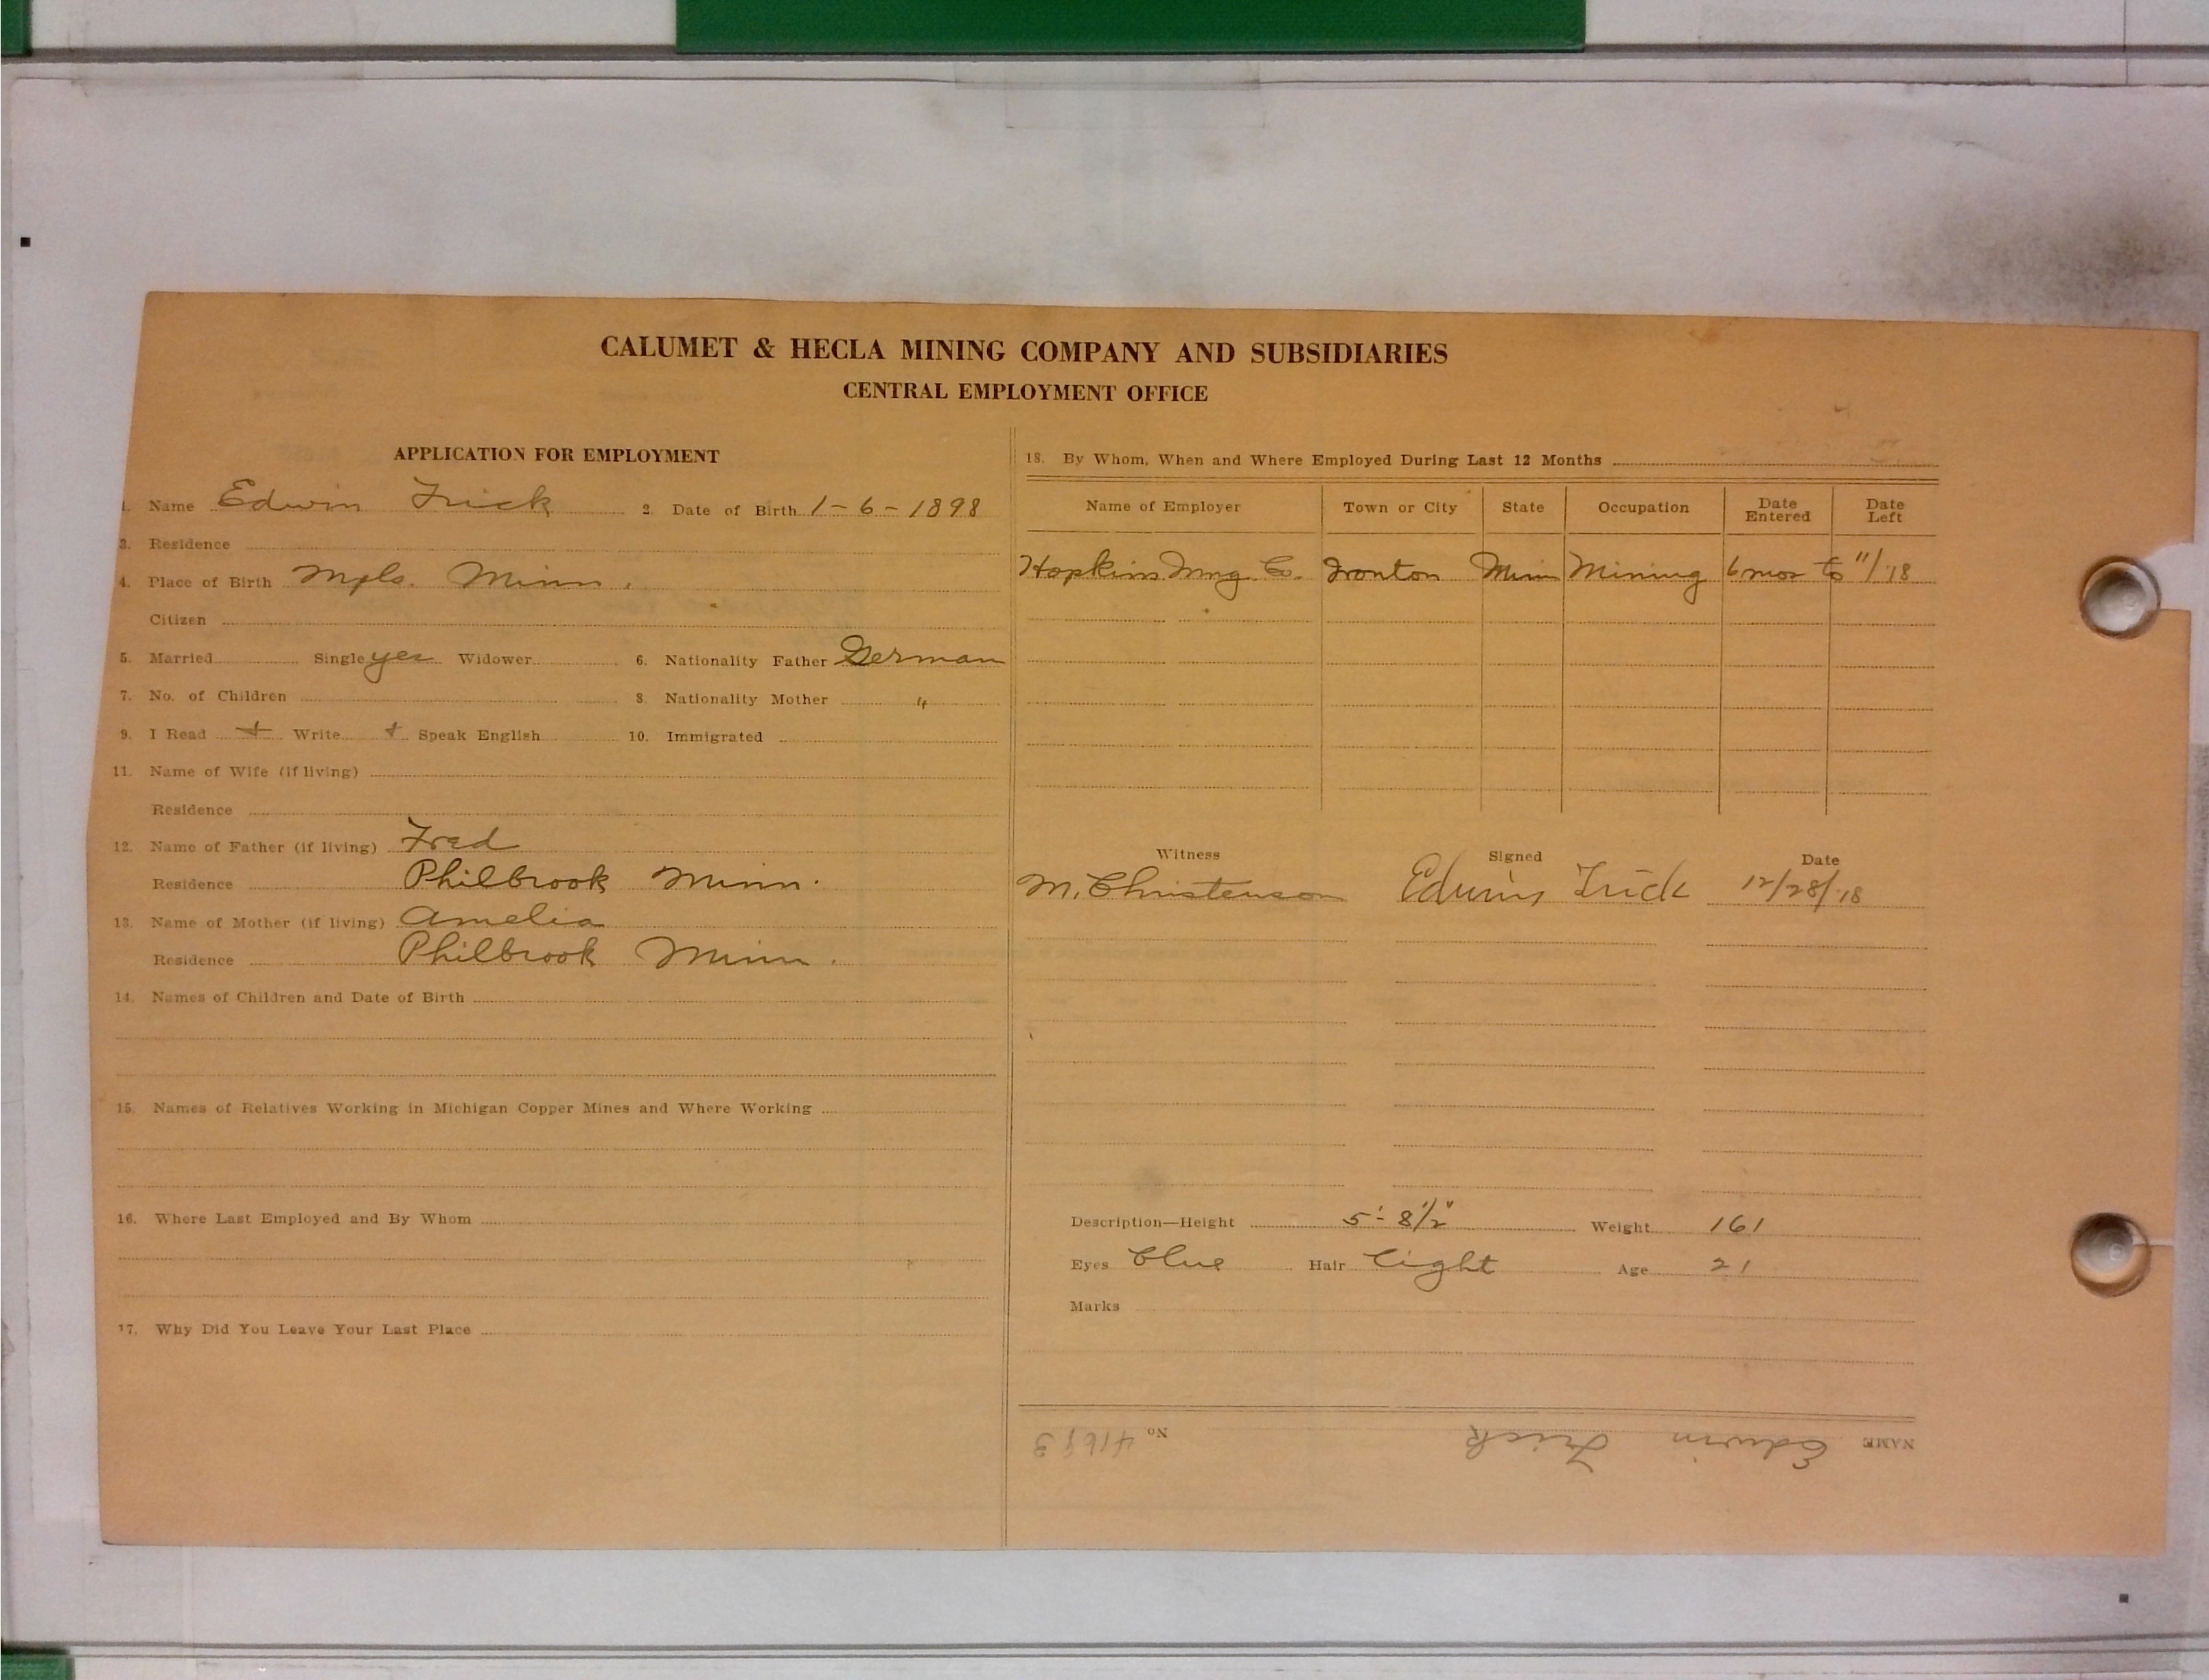 CALUMET & HECLA MINING COMPANY AND SUBSIDIARIES
CENTRAL EMPLOYMENT OFFICE
APPLICATION FOR EMPLOYMENT
1. Name Edwin Frick 2. Date of Birth 1-6-1898
3. Residence
4. Place of Birth Mpls. Minn.
Citizen
5. Married Single yes Widower 6. Nationality Father German
7. No. of Children 8. Nationality Mother "
9. I Read + Write + Speak English 10. Immigrated
11. Name of Wife (if living)
Residence
12. Name of Father (if living) Fred
Residence Philbrook Minn.
13. Name of Mother (if living) Amelia
Residence Philbrook Minn.
14. Names of Children and Date of Birth
15. Names of Relatives Working in Michigan Copper Mines and Where Working
16. Where Last Employed and By Whom
17. Why Did You Leave Your Last Place
18. By Whom, When and Where Employed During Last 12 Months
Name of Employer Town or City State Occupation Date Entered Date Left
Hopkins Mng. Co. Ironton Minn Mining 6 mos to 11/18
Witness Signed Date
M. Christenson Edwin Frick 12/28/18
Description—Height 5'-8 1/2" Weight 161
Eyes blue Hair light Age 21
Marks
NAME Edwin Frick No.